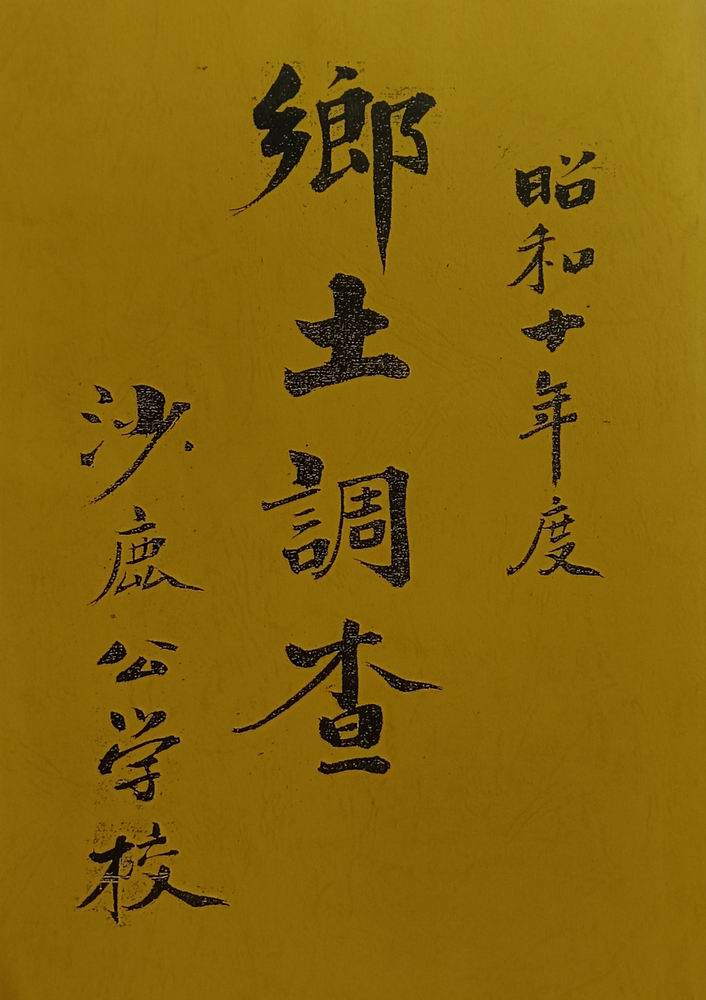 昭和十年度
鄉土調查
沙鹿公学校